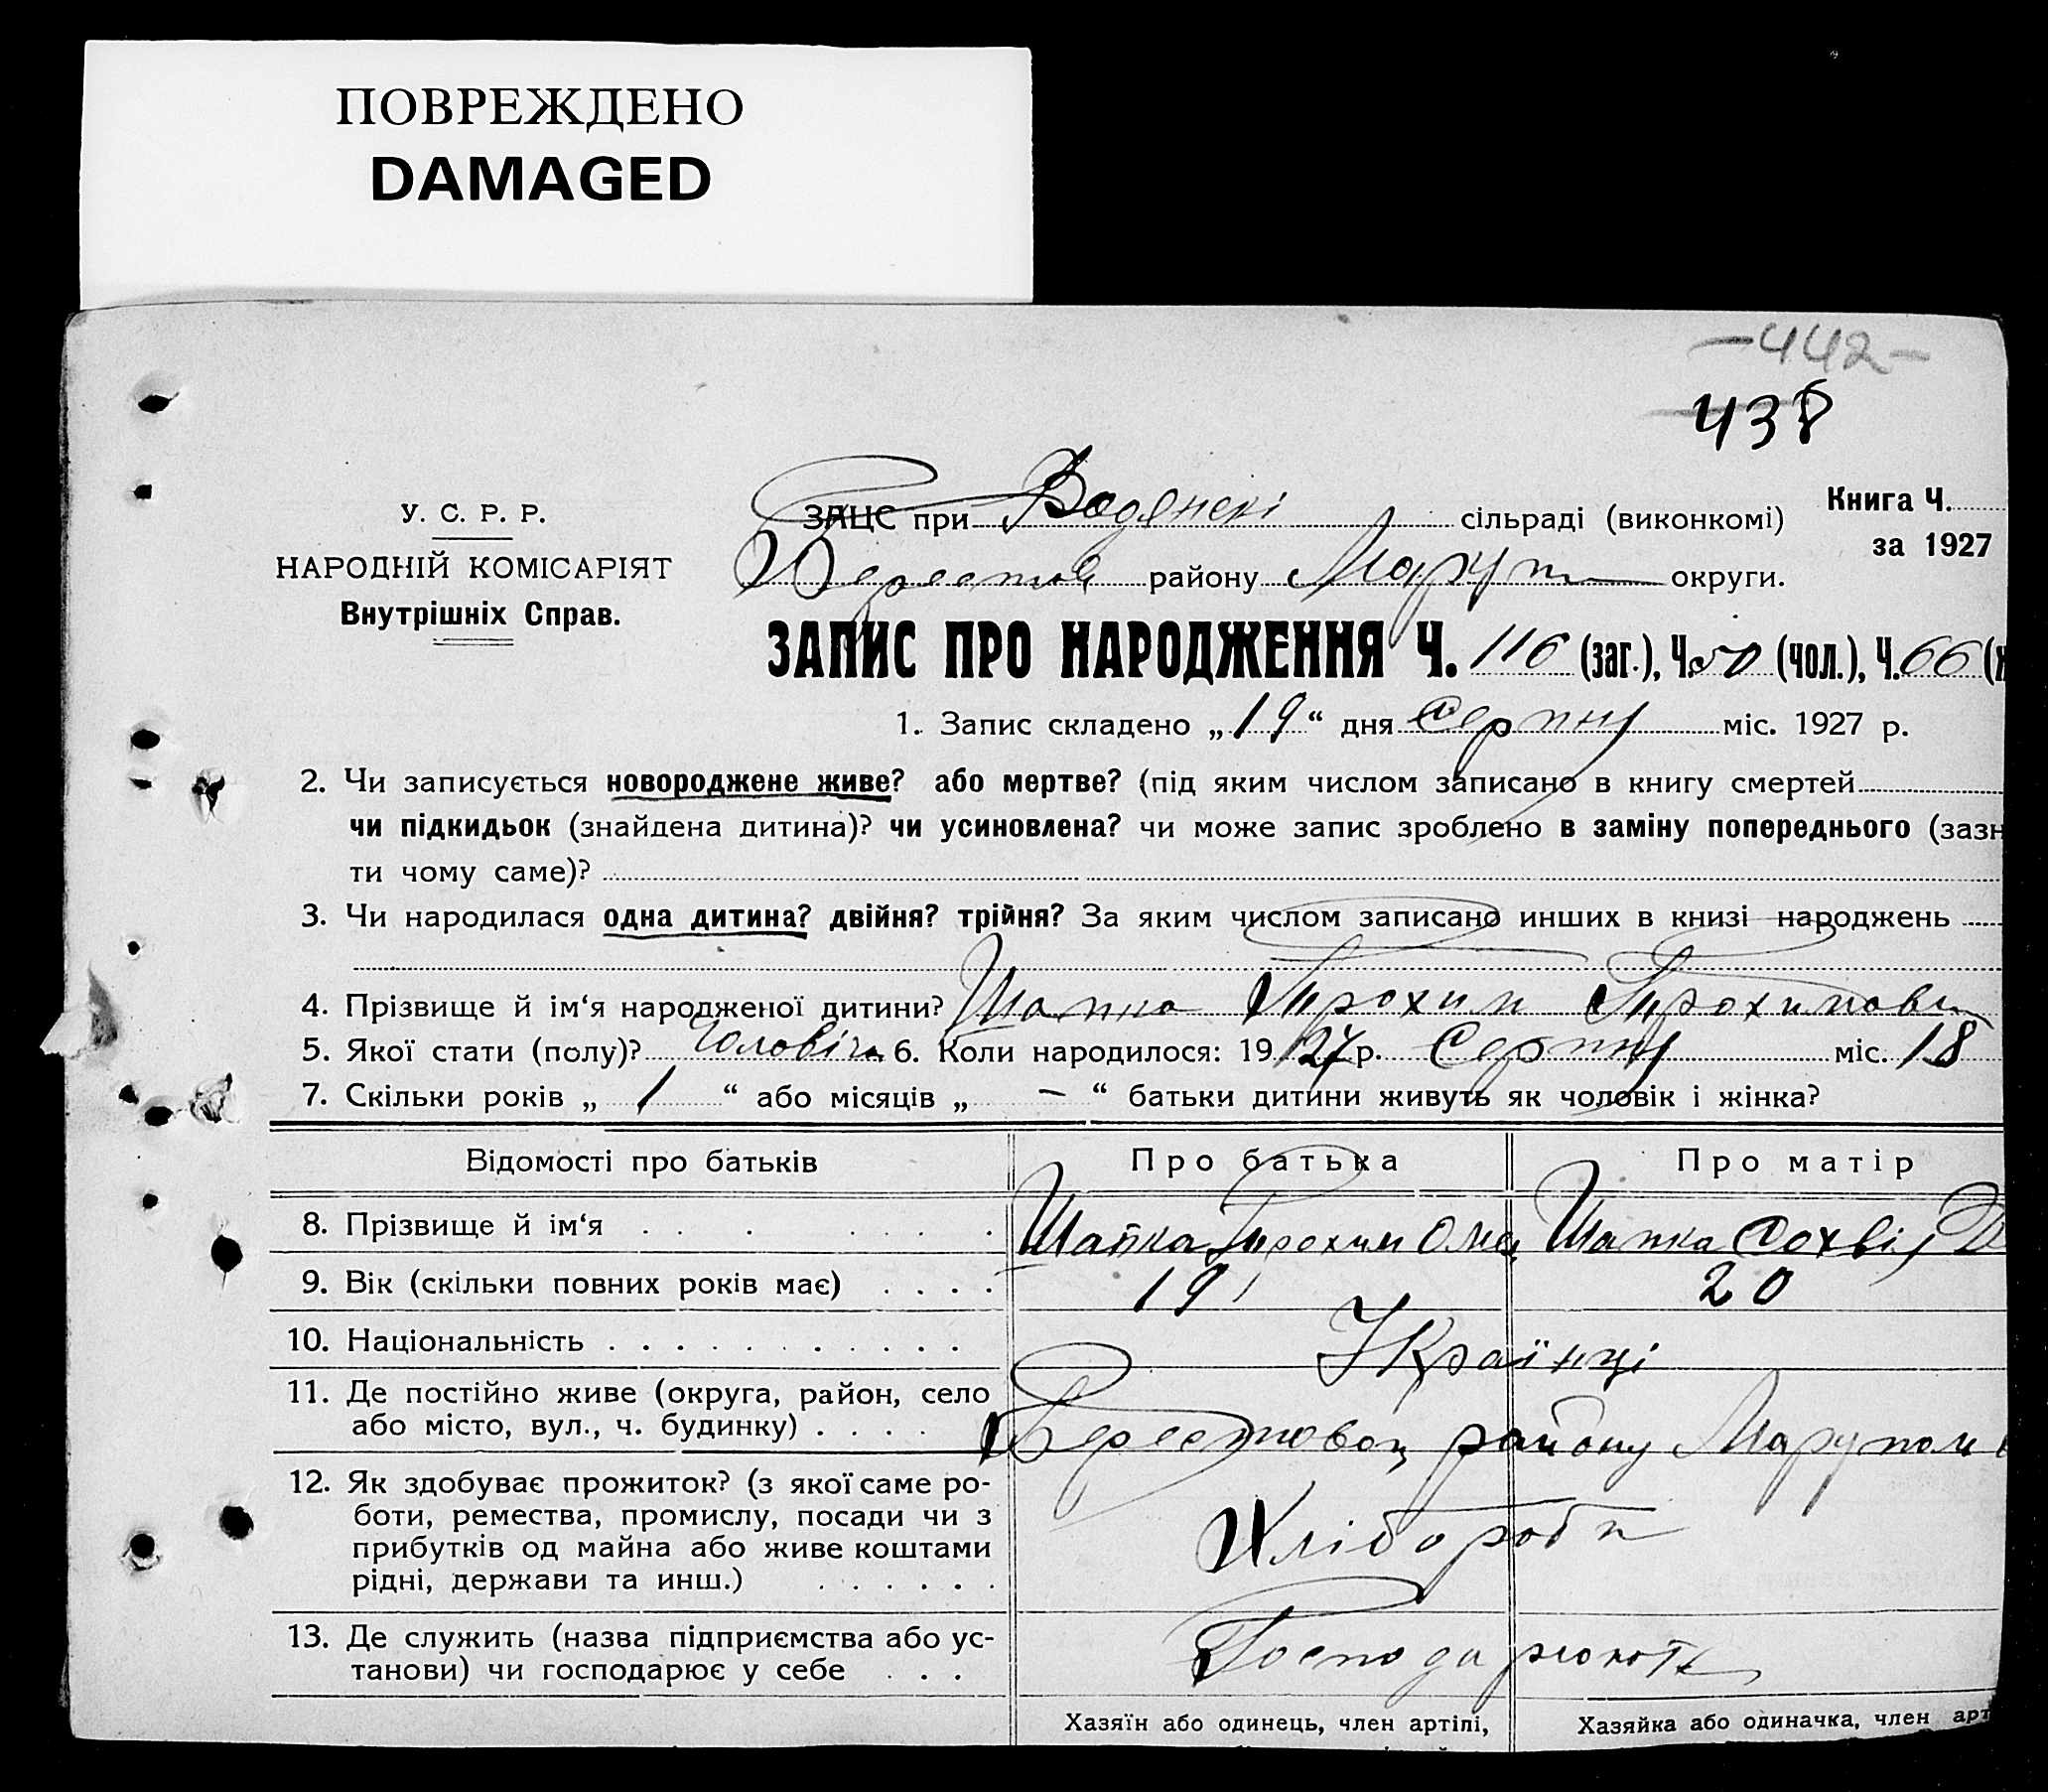 ПОВРЕЖДЕНО
DAMAGED
-442-
438
У. С. Р. Р.
НАРОДНІЙ КОМІСАРІЯТ
Внутрішніх Справ.
ЗАЦС при Водянскі сільраді (виконкомі)
Книга Ч.
за 1927
району Маруп округи.
ЗАПИС ПРО НАРОДЖЕННЯ Ч. 116 (заг.), Ч. 50 (чол.), Ч. 66 (ж
1. Запис складено „19“ дня Серпня міс. 1927 р.
2. Чи записується новороджене живе? або мертве? (під яким числом записано в книгу смертей
чи підкидьок (знайдена дитина)? чи усиновлена? чи може запис зроблено в заміну попереднього (зазн
ти чому саме)?
3. Чи народилася одна дитина? двійня? трійня? За яким числом записано инших в книзі народжень
4. Прізвище й ім‘я народженої дитини? Шапка Трохим Трохимович
5. Якої стати (полу)? Чоловіч 6. Коли народилося: 1927 р. Серпня міс. 18
7. Скільки років „ 1 “ або місяців „ — “ батьки дитини живуть як чоловік і жінка?
Відомості про батьків Про батька Про матір
8. Прізвище й ім‘я . . . . . . Шапка Трохим Шапка Сохвія
9. Вік (скільки повних років має) . . . . 19 20
10. Національність . . . . . . . . . . Українці
11. Де постійно живе (округа, район, село
або місто, вул., ч. будинку) . . . . Берестовец району Марупол
12. Як здобуває прожиток? (з якої саме ро-
боти, ремества, промислу, посади чи з
прибутків од майна або живе коштами
рідні, держави та инш.) . . . . . .
Хлібороби
13. Де служить (назва підприємства або ус-
танови) чи господарює у себе . . .
Господарюють
Хазяїн або одинець, член артілі, Хазяйка або одиначка, член арт